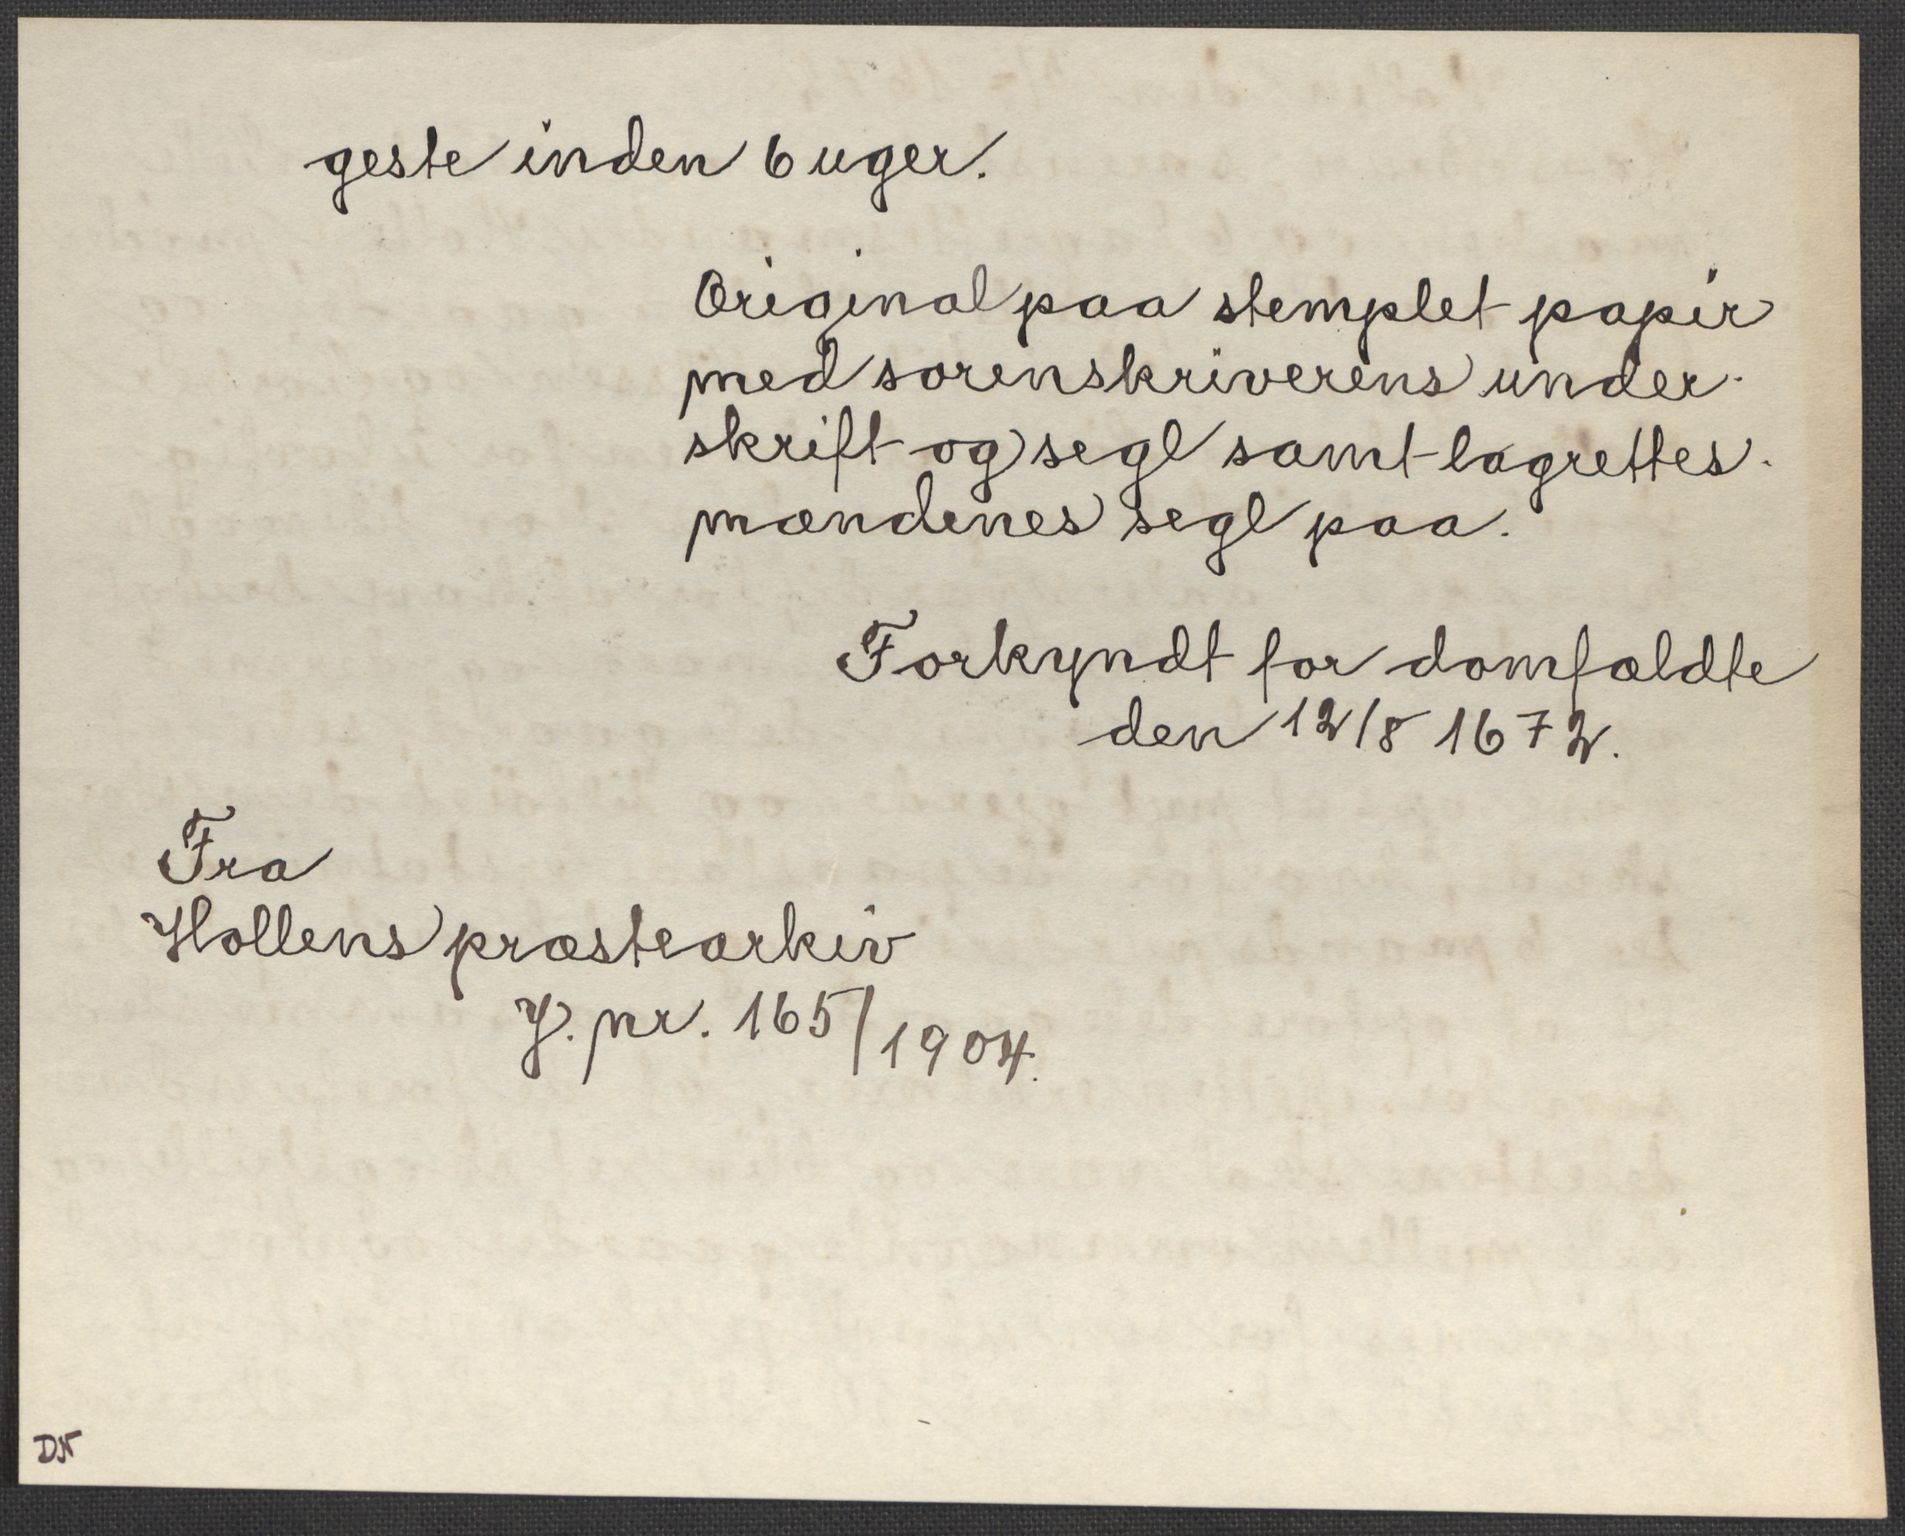 geste inden 6 uger.
Original paa stemplet papir
med sorenskriverens under-
skrift og segl samt lagrettes-
mændenes segl paa.
Forkyndt for domfældte
den 12/8 1672.
Fra
Hollens præstearkiv
J. nr. 165/1904.
DN